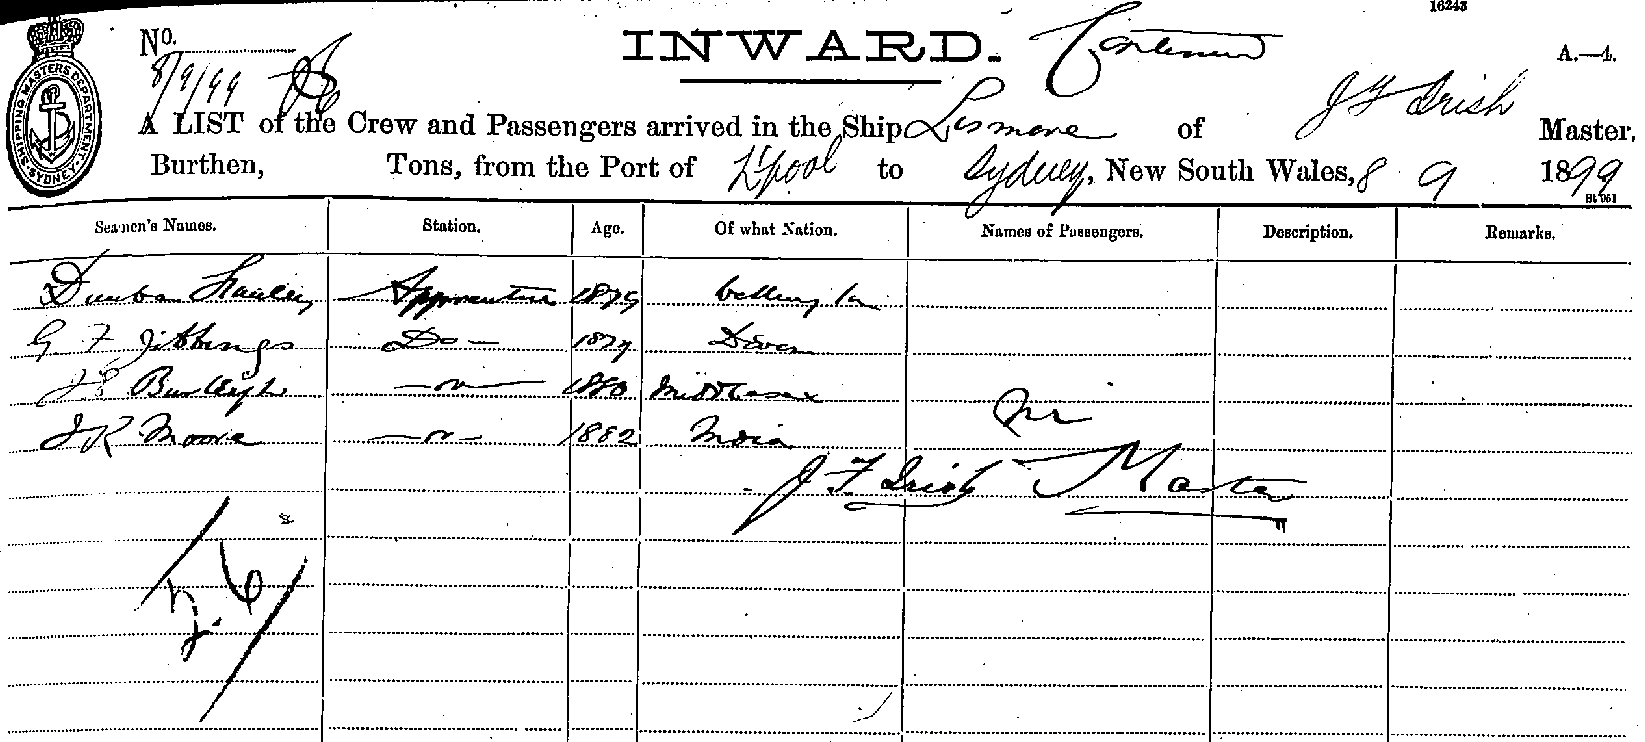 16243
No. INWARD. Continued A.—4.
8/9/99
SHIPPING MASTERS DEPARTMENT SYDNEY
A LIST of the Crew and Passengers arrived in the Ship Lismore of J F Irish Master,
Burthen, Tons, from the Port of L'pool to Sydney, New South Wales, 8 9 1899
Seamen's Names. Station. Age. Of what Nation. Names of Passengers. Description. Remarks.
Apprentice 1879
G F Jibbings Do 1879 Devon
Burleigh 1880 Middlesex
J R Moore 1882 India
J F Irish Master